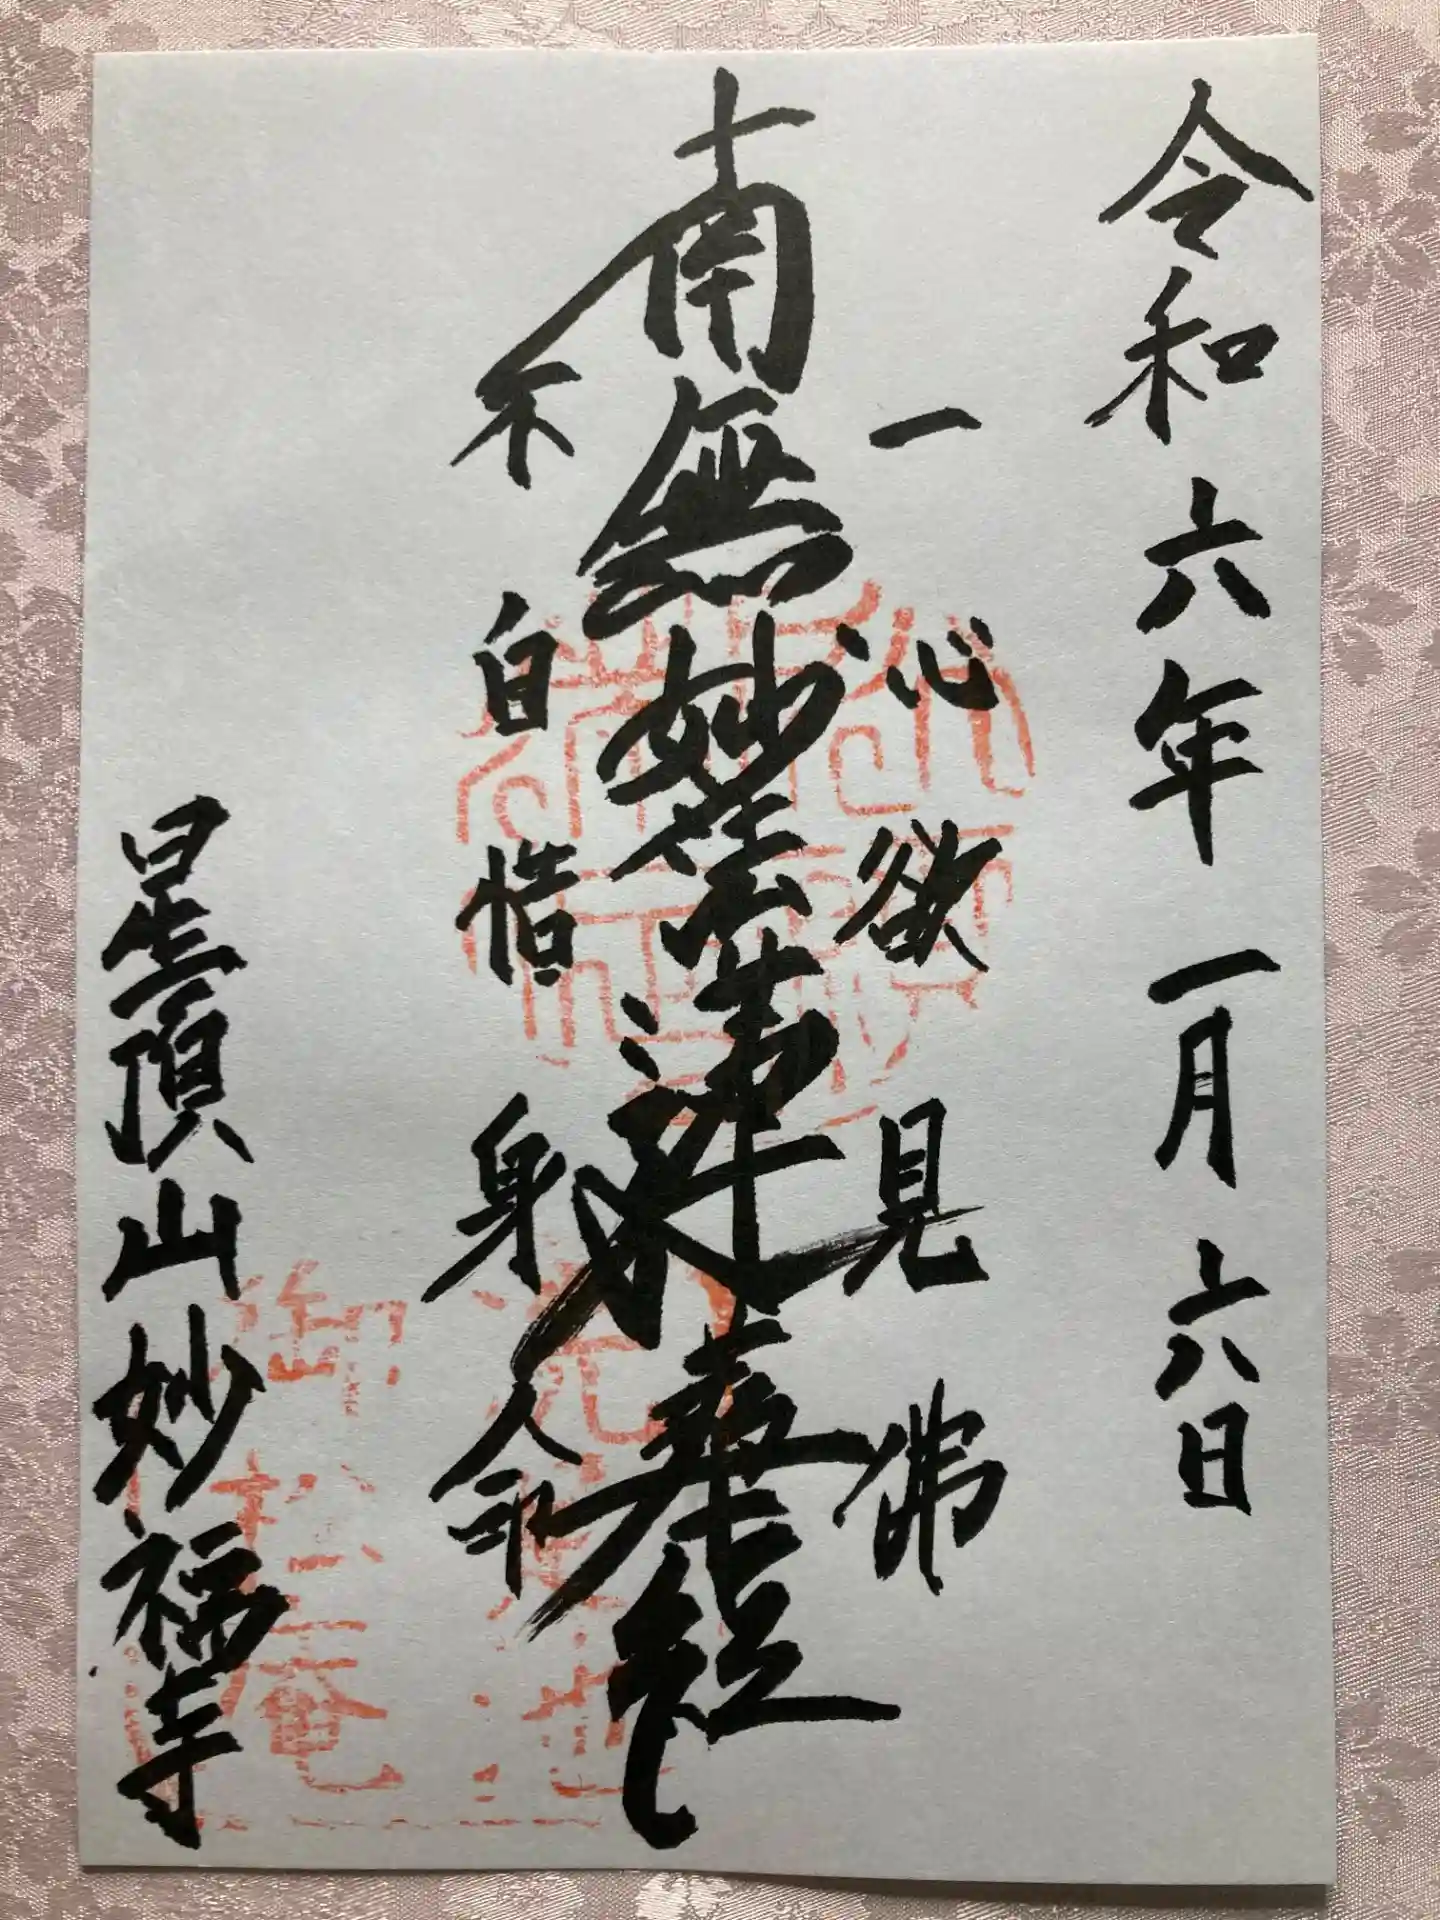 令和六年一月六日
一心欲見佛
南無妙法蓮華経
不自惜身命
星頂山妙福寺